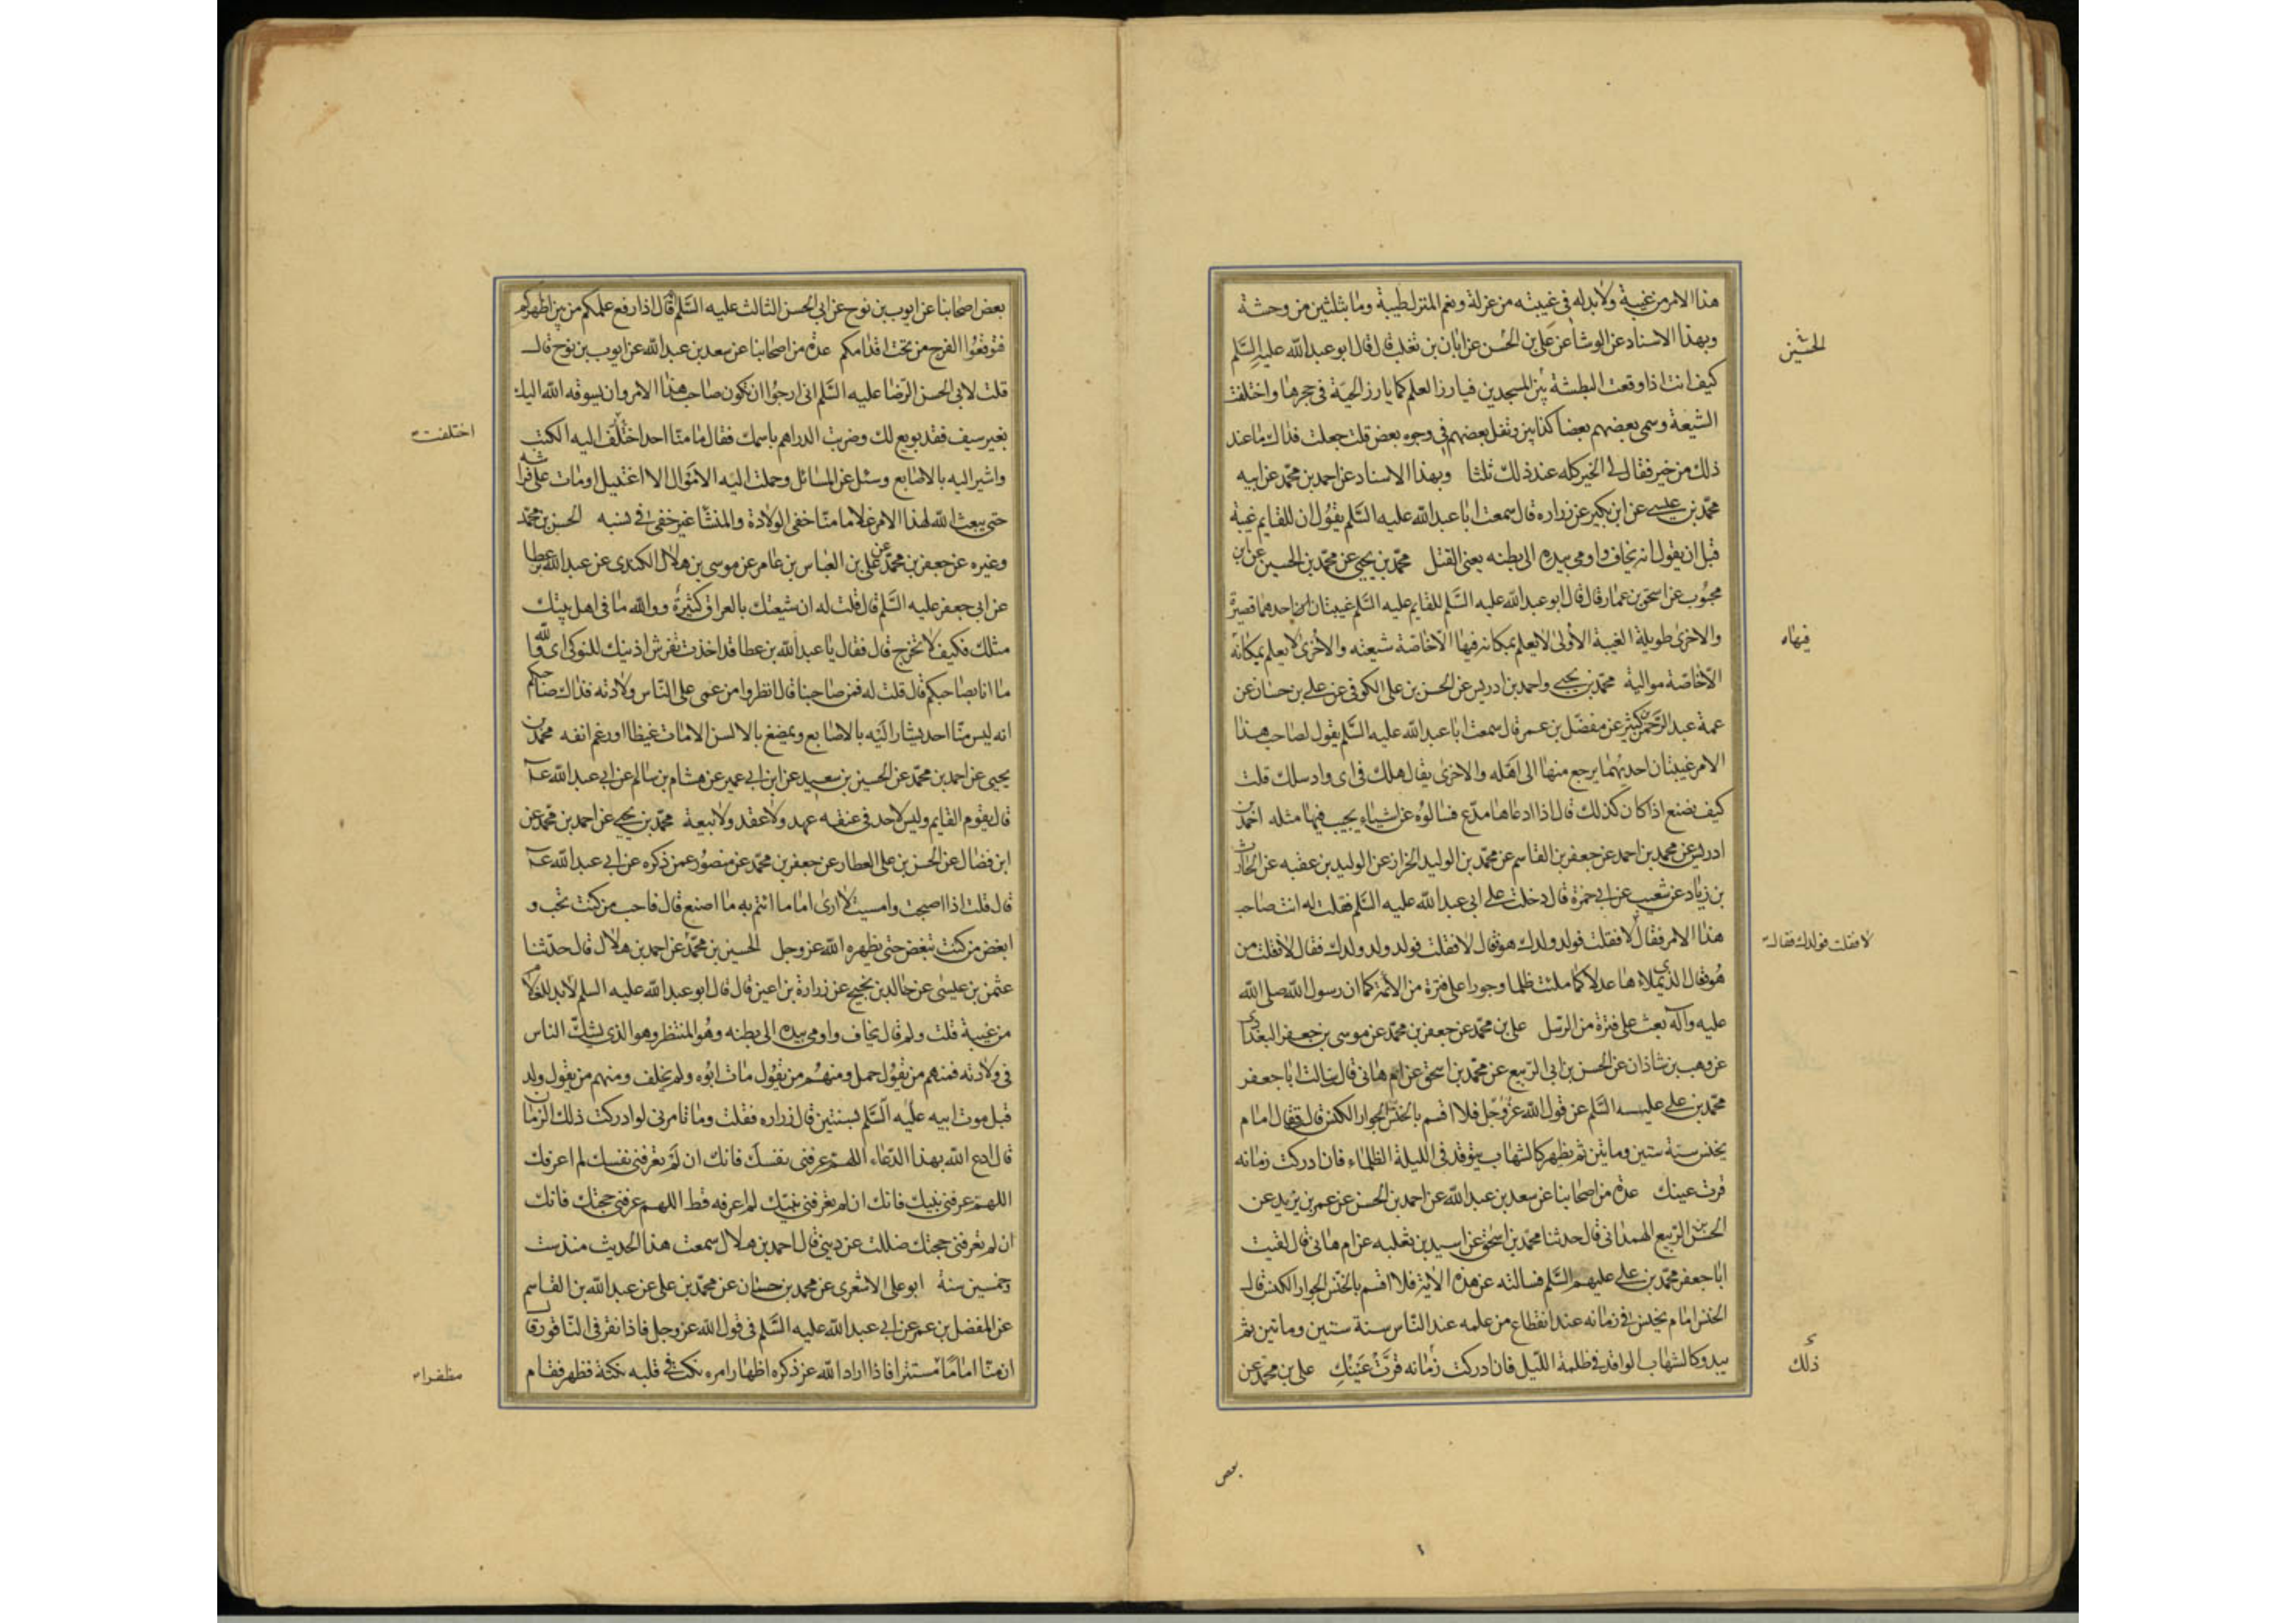 هذا الامر من غيبة ولابد له في غيبته من عزلة ونعم المنزل طيبة وما بثلثين من وحشة
وبهذا الاسناد عن الوشا عن علي بن الحسن عن ابان بن تغلب قال قال ابو عبد الله عليه السلم
الحسين
كيف انت اذا وقعت البطشة بين المسجدين فيارز العلم كما يارز الحية في جحرها واختلفت
الشيعة وسمى بعضهم بعضا كذابين وتفل بعضهم في وجوه بعض قلت جعلت فداك ما عند
ذلك من خير فقال لي الخير كله عند ذلك ثلثا وبهذا الاسناد عن احمد بن محمد عن ابيه
محمد بن عيسى عن ابن بكير عن زراره قال سمعت ابا عبد الله عليه السلم يقول ان للقايم غيبة
قبل ان يقوم انه يخاف واومى بيده الى بطنه يعني القتل محمد بن يحيى عن محمد بن الحسين عن ابن
محبوب عن اسحق بن عمار قال قال ابو عبد الله عليه السلم للقايم عليه السلم غيبتان احديهما قصيرة
والاخرى طويلة الغيبة الاولى لا يعلم بمكانه فيها الا خاصة شيعته والاخرى لا يعلم بمكانه
فيها
الا خاصة مواليه محمد بن يحيى واحمد بن ادريس عن الحسن بن علي الكوفي عن علي بن حسان عن
عمه عبد الرحمن بن كثير عن مفضل بن عمر قال سمعت ابا عبد الله عليه السلم يقول لصاحب هذا
الامر غيبتان احديهما يرجع منها الى اهله والاخرى يقال هلك في اى واد سلك قلت
كيف نصنع اذا كان كذلك قال اذا ادعاها مدع فسالوه عن اشياء يجيب فيها مثله احمد بن
ادريس عن محمد بن احمد عن جعفر بن القاسم عن محمد بن الوليد الخزاز عن الوليد بن عقبه عن الحارث
بن زياد عن شعيب عن ابي حمزة قال دخلت على ابي عبد الله عليه السلم فقلت له انت صاحب
هذا الامر فقال لا فقلت فولد ولدك هو قال لا فقلت فولد ولد ولدك فقال لا فقلت من
لا فقلت فولدك فقال
هو قال الذي يملاءها عدلا كما ملئت ظلما وجورا على فترة من الائمة كما ان رسول الله صلى الله
عليه وآله بعث على فترة من الرسل علي بن محمد عن جعفر بن محمد عن موسى بن جعفر البغدادي
عن وهب بن شاذان عن الحسن بن ابي الربيع عن محمد بن اسحق عن ام هانى قال سالت ابا جعفر
محمد بن علي عليه السلم عن قول الله عز وجل فلا اقسم بالخنس الجوار الكنس قال فقال امام
يخنس سنة ستين ومائتين ثم يظهر كالشهاب يتوقد في الليلة الظلماء فان ادركت زمانه
قرت عينك عدة من اصحابنا عن سعد بن عبد الله عن احمد بن الحسن عن عمر بن يزيد عن
الحسن بن الربيع الهمداني قال حدثنا محمد بن اسحق عن اسيد بن ثعلبه عن ام هانى قال لقيت
ابا جعفر محمد بن علي عليهم السلم فسالته عن هذه الاية فلا اقسم بالخنس الجوار الكنس قال
الخنس امام يخنس في زمانه عند انقطاع من علمه عند الناس سنة ستين ومائتين ثم
يبدو كالشهاب الواقد في ظلمة الليل فان ادركت زمانه قرت عينك علي بن محمد عن
ذلك
بعض
بعض اصحابنا عن ايوب بن نوح عن ابي الحسن الثالث عليه السلم قال اذا رفع علمكم من بين اظهركم
فتوقعوا الفرج من تحت اقدامكم عدة من اصحابنا عن سعد بن عبد الله عن ايوب بن نوح قال
قلت لابي الحسن الرضا عليه السلم اني ارجوا ان تكون صاحب هذا الامر وان يسوقه الله اليك
بغير سيف فقد بويع لك وضربت الدراهم باسمك فقال ما منا احد اختلف اليه الكتب
اختلفت
واشير اليه بالاصابع وسئل عن المسائل وحملت اليه الاموال الا اغتيل او مات على فراشه
حتى يبعث الله لهذا الامر غلاما منا خفي الولادة والمنشا غير خفي في نسبه الحسن بن محمد
وغيره عن جعفر بن محمد عن علي بن العباس بن عامر عن موسى بن هلال الكندى عن عبد الله بن عطا
عن ابي جعفر عليه السلم قال قلت له ان شيعتك بالعراق كثيرة ووالله ما في اهل بيتك
مثلك فكيف لا تخرج قال فقال يا عبد الله بن عطا قد اخذت تفرش اذنيك للنوكى اى والله
ما انا بصاحبكم قال قلت له فمن صاحبنا قال انظروا من عمى على الناس ولادته فذاك صاحبكم
انه ليس منا احد يشار اليه بالاصابع ويمضغ بالالسن الا مات غيظا او رغم انفه محمد بن
يحيى عن احمد بن محمد عن الحسين بن سعيد عن ابن ابي عمير عن هشام بن سالم عن ابي عبد الله ع
قال يقوم القايم وليس لاحد في عنقه عهد ولا عقد ولا بيعة محمد بن يحيى عن احمد بن محمد عن
ابن فضال عن الحسن بن علي العطار عن جعفر بن محمد عن منصور عمن ذكره عن ابي عبد الله ع
قال قلت اذا اصبحت وامسيت لا ارى اماما ائتم به ما اصنع قال فاحب من كنت تحب و
ابغض من كنت تبغض حتى يظهره الله عز وجل الحسين بن محمد عن احمد بن هلال قال حدثنا
عثمن بن عيسى عن خالد بن نجيح عن زرارة بن اعين قال قال ابو عبد الله عليه السلم لابد للغلام
من غيبة قلت ولم قال يخاف واومى بيده الى بطنه وهو المنتظر وهو الذي يشك الناس
في ولادته فمنهم من يقول حمل ومنهم من يقول مات ابوه ولم يخلف ومنهم من يقول ولد
قبل موت ابيه عليه السلم بسنتين قال زراره فقلت وما تامرنى لو ادركت ذلك الزمان
قال ادع الله بهذا الدعاء اللهم عرفنى نفسك فانك ان لم تعرفنى نفسك لم اعرفك
اللهم عرفنى نبيك فانك ان لم تعرفنى نبيك لم اعرفه قط اللهم عرفنى حجتك فانك
ان لم تعرفنى حجتك ضللت عن دينى قال احمد بن هلال سمعت هذا الحديث منذ ست
وخمسين سنة ابو علي الاشعرى عن محمد بن حسان عن محمد بن علي عن عبد الله بن القاسم
عن المفضل بن عمر عن ابي عبد الله عليه السلم في قول الله عز وجل فاذا نقر في الناقور قال
ان منا اماما مستترا فاذا اراد الله عز ذكره اظهار امره نكت في قلبه نكتة فظهر فقام
مظفرا